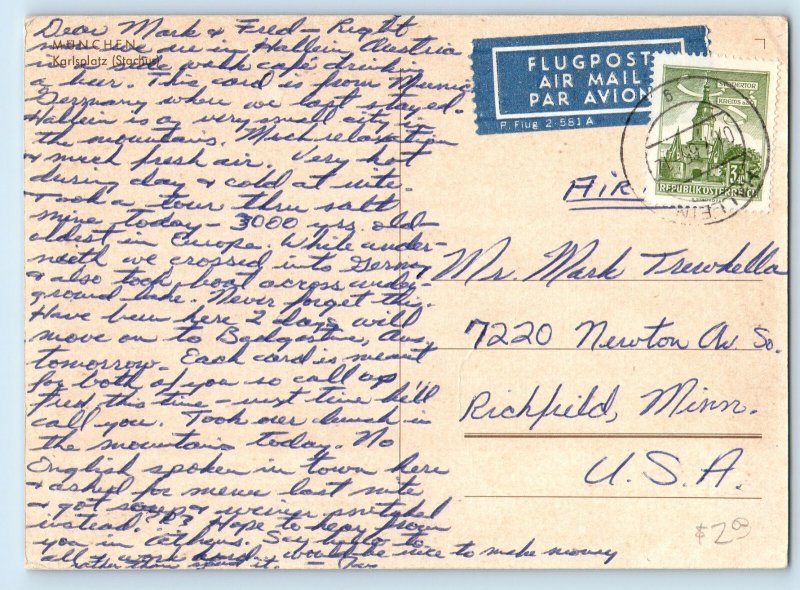 MÜNCHEN
Karlsplatz (Stachus)
Dear Mark & Fred - Right
now we are in Hallein, Austria
in side walk cafe drinking
a beer. This card is from Munich
Germany where we last stayed.
Hallein is a very small city in
the mountains. Much relaxation
& much fresh air. Very hot
during day & cold at nite.
Took a tour thru salt
mine today - 3000 yrs. old -
oldest in Europe. While under-
neith we crossed into Germany
& also took boat across under-
ground lake. Never forget this.
Have been here 2 days will
move on to Badgastein, Aus,
tomorrow. Each card is meant
for both of you so call up
Fred this time - next time he'll
call you. Took our lunch in
the mountains today. No
English spoken in town here
& asked for menu last nite
& got soup & weiner snitchel
instead. Hope to hear from
you in Athens. Say hello to
all. work hard, would be nice to make money
rather than spend it. -
FLUGPOST
AIR MAIL
PAR AVION
P. Flug 2-581 A
STEINERTOR
KREMS a.d.
REPUBLIK ÖSTERREICH
AIR
Mr. Mark Trewhella
7220 Newton Av. So.
Richfield, Minn.
U.S.A.
$2.00